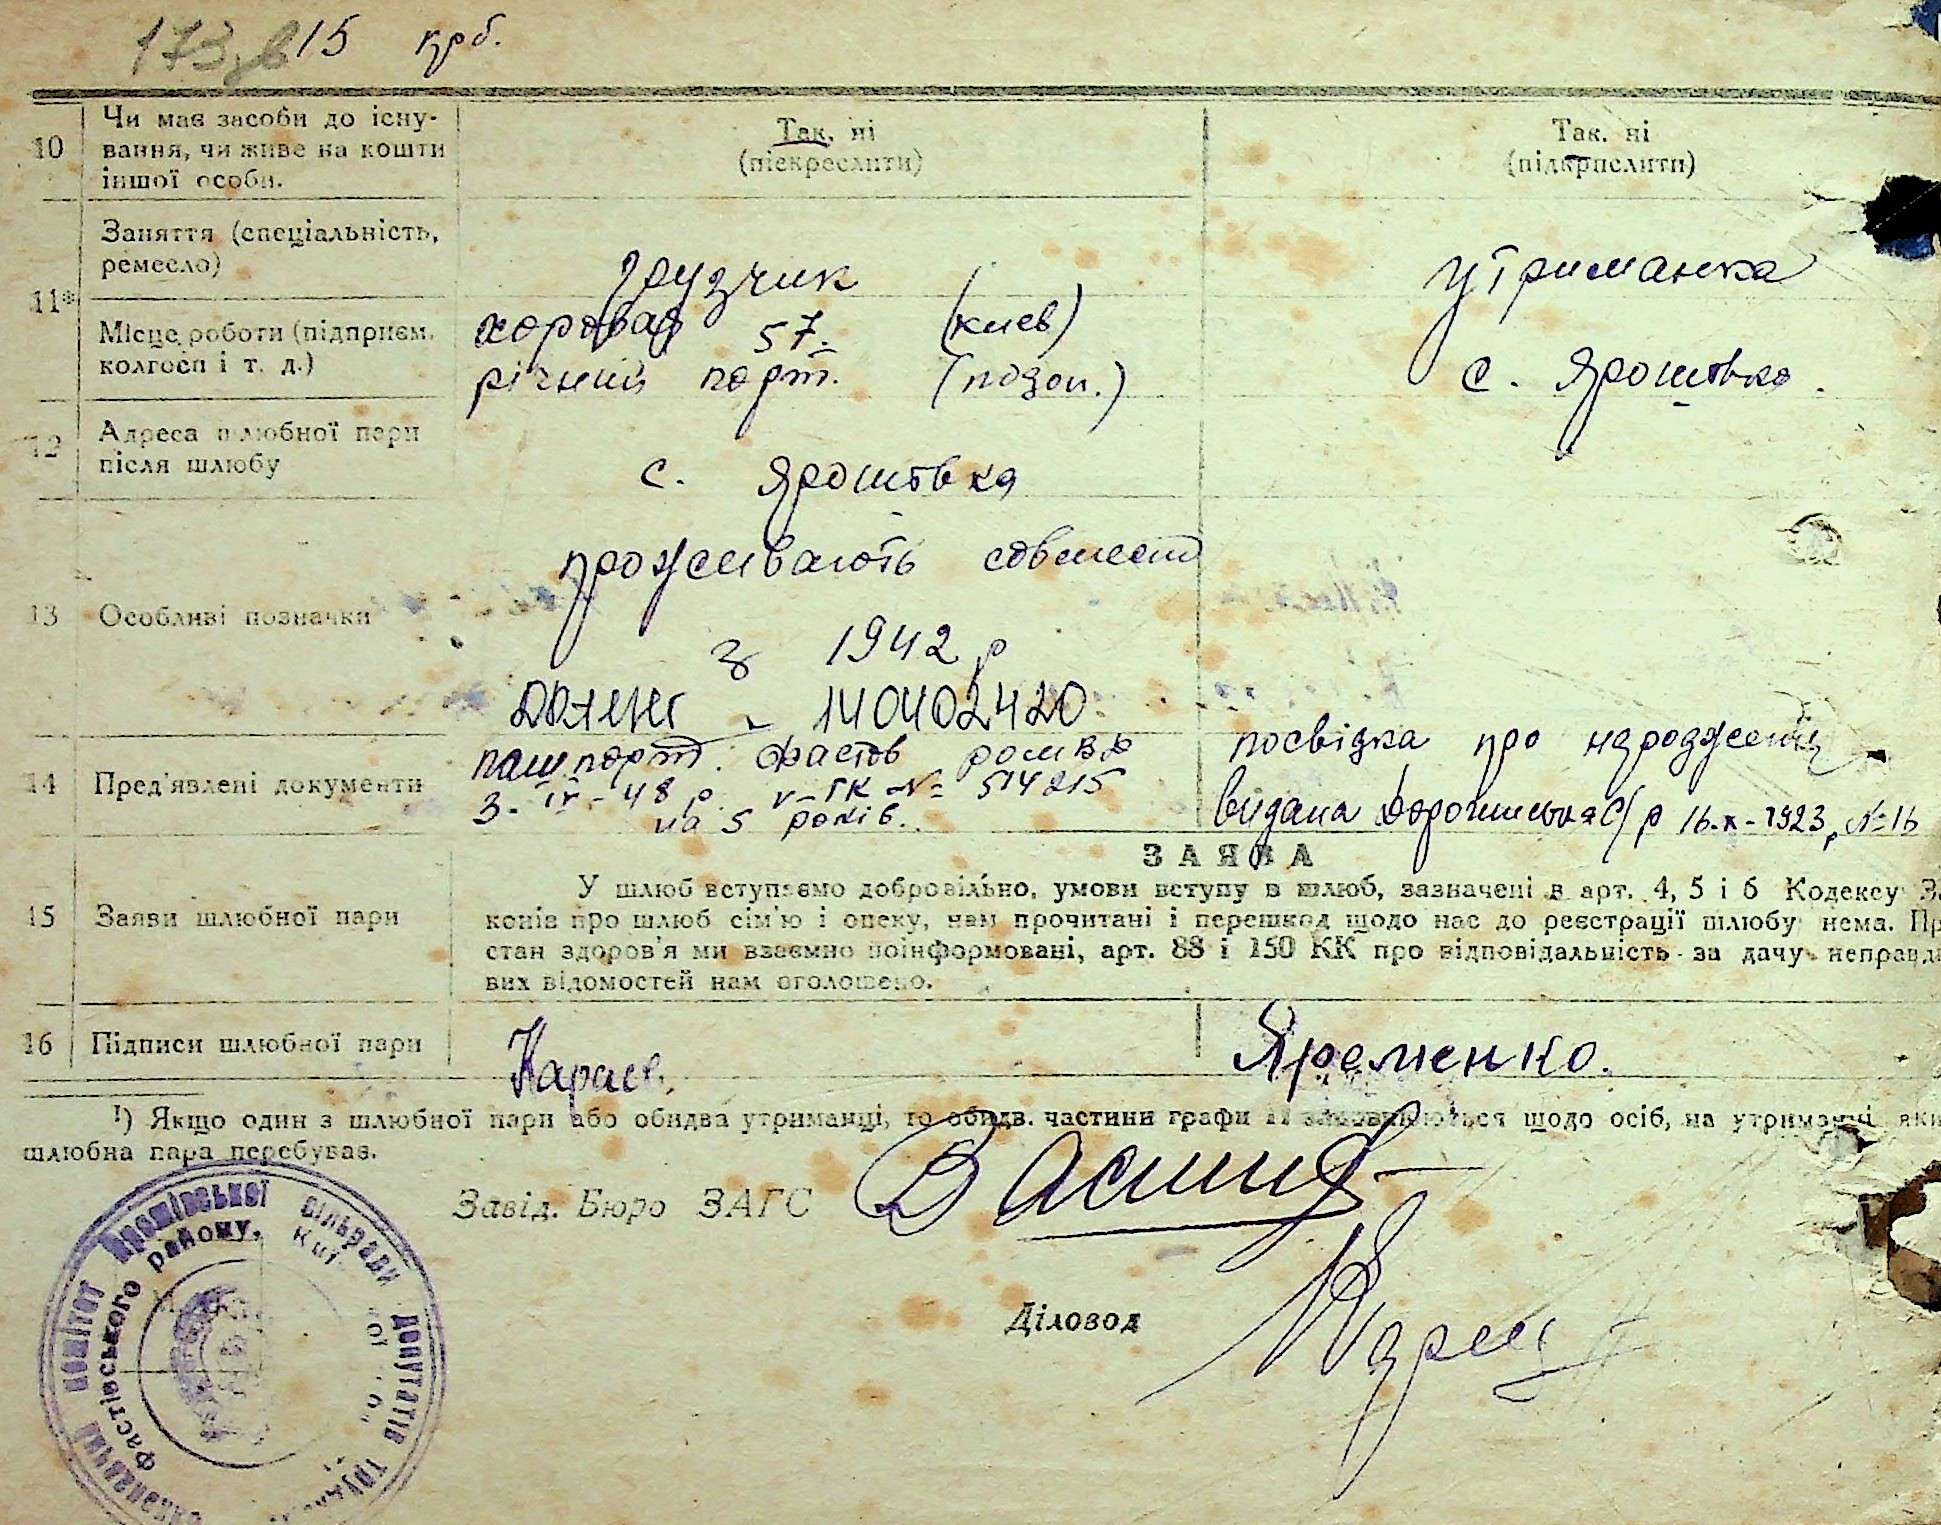 15 крб.
10 Чи має засоби до існу-
вання, чи живе на кошти
іншої особи.
Так, ні
(піскреслити)
Так, ні
(підкрислити)
11* Заняття (спеціальність,
ремесло)
грузчик
утриманка
Місце роботи (підприєм.
колгосп і т. д.)
57. (киев)
річний порт.
с. Ярошівка.
12 Адреса шлюбної пари
після шлюбу
с. Ярошівка
13 Особливі позначки
проживають совмест
з 1942 р
140402420
14 Пред'явлені документи
пашпорт. Фастов
3-IV-48 р. 514215
на 5 років.
посвідка про народження
видана С/р 16-X-1923 р №16
ЗАЯВА
15 Заяви шлюбної пари
У шлюб вступаємо добровільно, умови вступу в шлюб, зазначені в арт. 4, 5 і 6 Кодексу За
конів про шлюб сім'ю і опеку, нам прочитані і перешкод щодо нас до реєстрації шлюбу нема. Пр
стан здоров'я ми взаємно поінформовані, арт. 88 і 150 КК про відповідальність за дачу неправди
вих відомостей нам оголошено.
16 Підписи шлюбної пари
Яременко.
¹) Якщо один з шлюбної пари або обидва утриманці, то обидв. частини графи 11 заповнюються щодо осіб, на утриманні яки
шлюбна пара перебуває.
Завід. Бюро ЗАГС
Діловод
комітет Ярошівської сільради депутатів
Фастівського району,